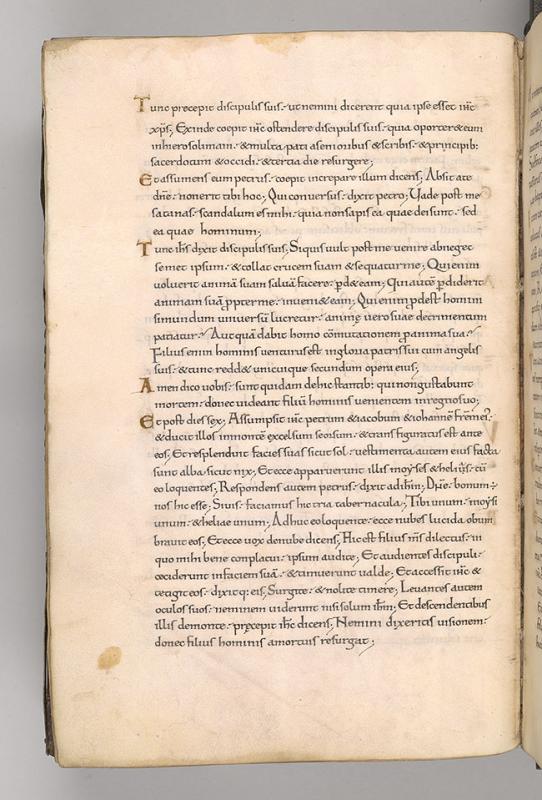 Tunc precepit discipulis suis. ut nemini dicerent quia ipse esset ihc
xps; Exinde coepit ihc ostendere discipulis suis. quia oporter&eum
inhierosolimam. &multa pati asenioribus &scribis. &principib:
sacerdotum &occidi. &tertia die resurgere;
Et assumens eum petrus. coepit increpare illum dicens; Absit ate
dne. nonerit tibi hoc; Qui conversus. dixit petro; Vade post me
satanas. scandalum es mihi. quia nonsapis ea quae dei sunt. sed
ea quae hominum;
Tunc ihs dixit discipulis suis; Siquis vult post me venire abneget
semet ipsum. &tollat crucem suam &sequatur me; Qui enim
voluerit animā suam salvā facere. pd&eam; Qui autē pdiderit
animam suā ppter me. inveni&eam; Qui enim pdest homini
si mundum universū lucretur. animę vero suae detrimentum
patiatur; Aut quā dabit homo cōmutationem p anima sua;
Filius enim hominis venturus est ingloria patris sui cum angelis
suis. &tunc redd& unicuique secundum opera eius;
Amen dico vobis. sunt quidam dehic stantib: qui nongustabunt
mortem. donec videant filiū hominis venientem inregno suo;
Et post dies sex; Assumpsit ihc petrum &iacobum &iohannē frēm ei.
&ducit illos inmontē excelsum seorsum. &transfiguratus est ante
eos; Et resplenduit facies suas sicut sol. vestimenta autem eius facta
sunt alba sicut nix; Et ecce apparuerunt illis moyses &helias. cū
eo loquentes; Respondens autem petrus. dixit adihm; Dne. bonum ÷
nos hic esse; Si vis. faciamus hic tria tabernacula; Tibi unum. moysi
unum. &heliae unum; Adhuc eo loquente. ecce nubes lucida obum
bravit eos; Et ecce vox denube dicens; Hic est filius ms dilectus. in
quo mihi bene complacui. ipsum audite; Et audientes discipuli.
ceciderunt infaciem suā. &timuerunt valde; Et accessit ihc &
tetigit eos. dixitq: eis; Surgite. &nolite timere; Levantes autem
oculos suos. neminem viderunt nisi solum ihm; Et descendentibus
illis demonte. pręcepit ihc dicens; Nemini dixeritis visionem.
donec filius hominis amortuis resurgat;